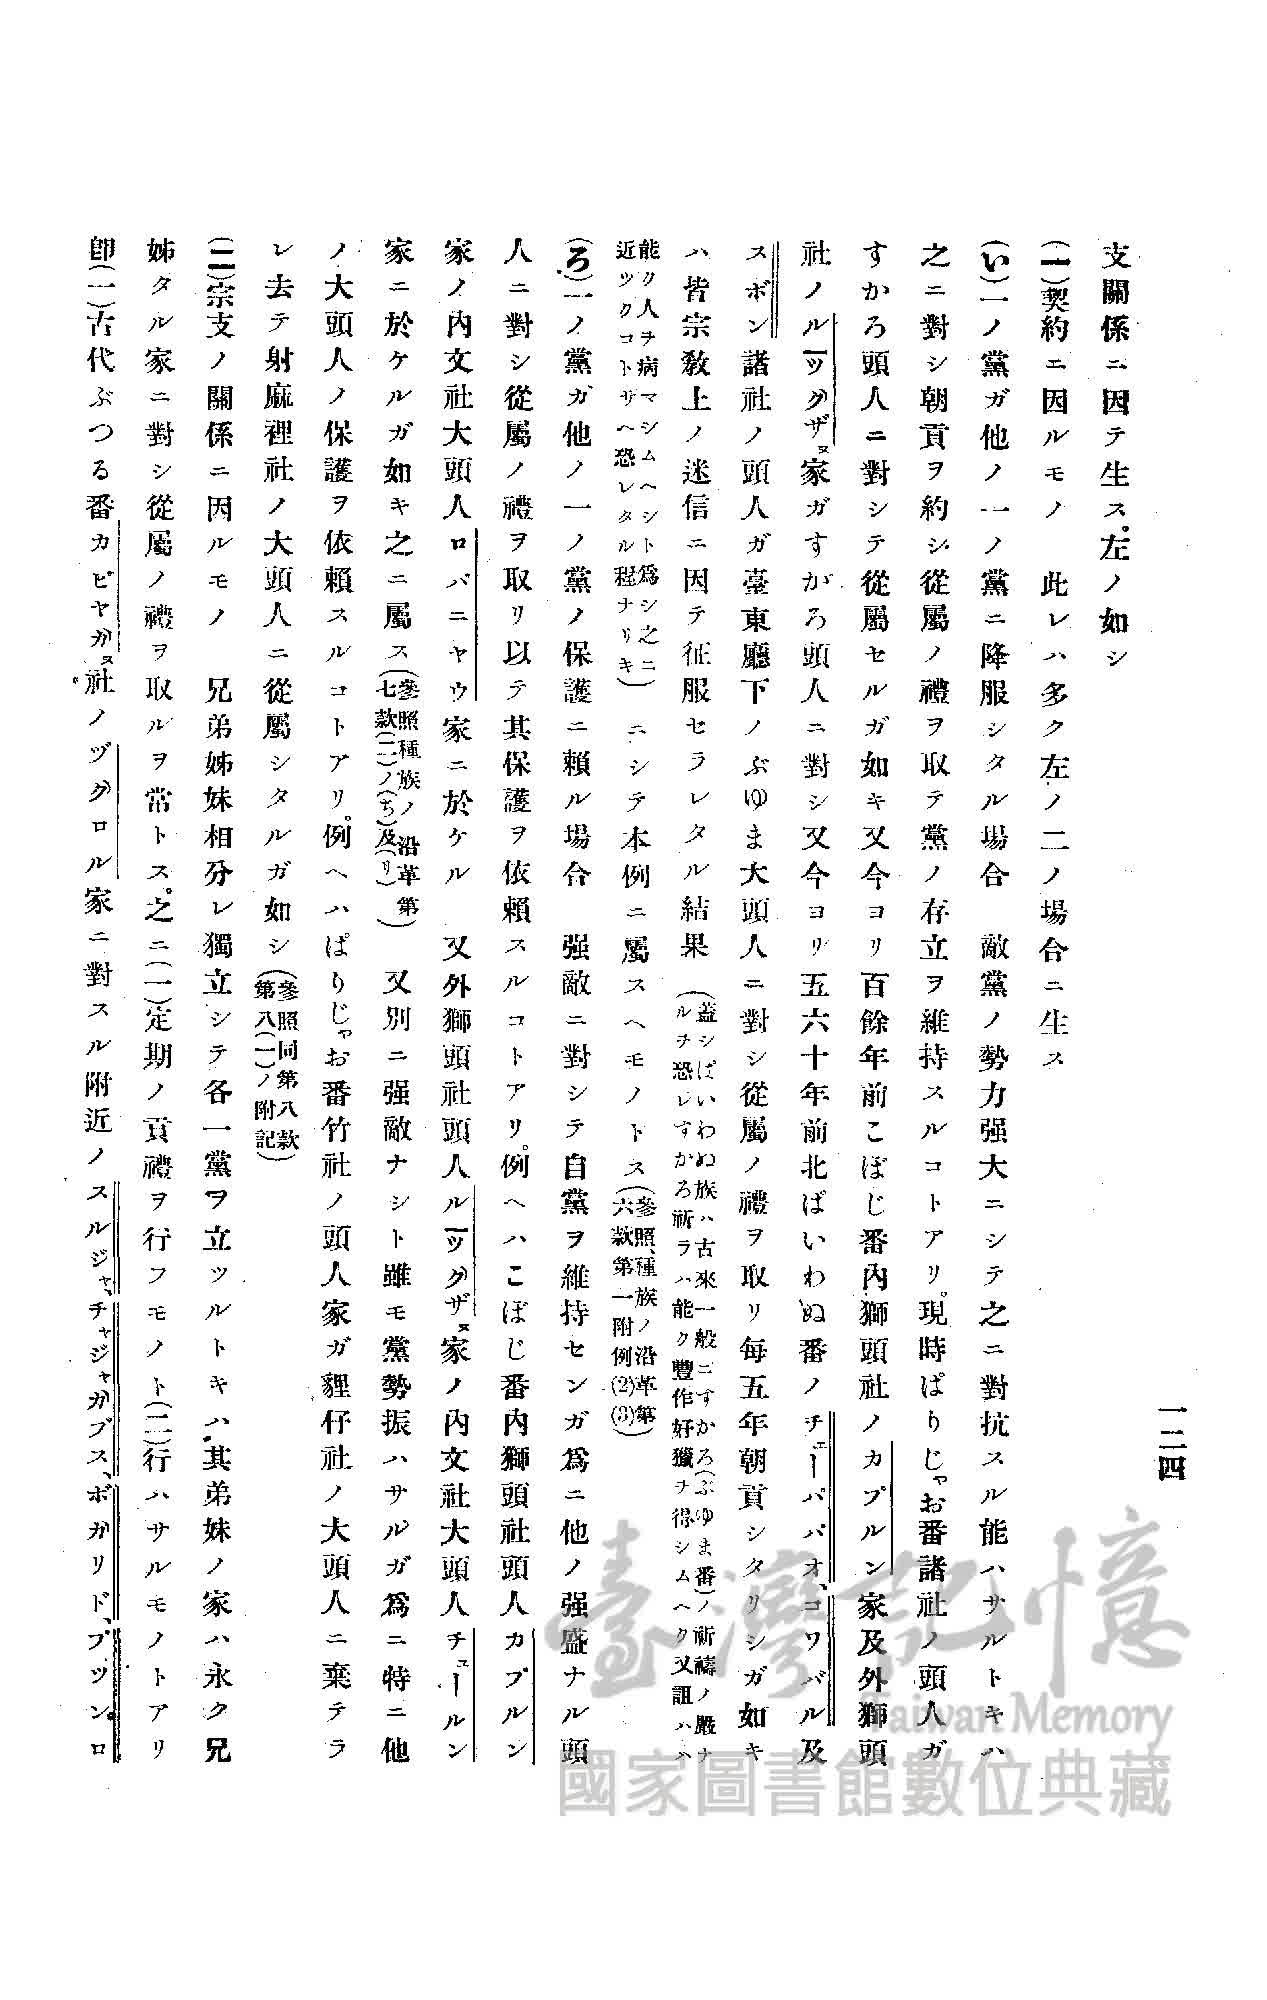 一二四
支關係ニ因テ生ス。左ノ如シ
(一)契約ニ因ルモノ　此レハ多ク左ノ二ノ場合ニ生ス
(い)一ノ黨ガ他ノ一ノ黨ニ降服シタル場合　敵黨ノ勢力强大ニシテ之ニ對抗スル能ハサルトキハ
之ニ對シ朝貢ヲ約シ從屬ノ禮ヲ取テ黨ノ存立ヲ維持スルコトアリ。現時ぱりじゃお番諸社ノ頭人ガ
すかろ頭人ニ對シテ從屬セルガ如キ又今ヨリ百餘年前こぼじ番內獅頭社ノカプルン家及外獅頭
社ノルーヅクザヌ家ガすがろ頭人ニ對シ又今ヨリ五六十年前北ぱいわぬ番ノチューパパオ、コワバル及
スボン諸社ノ頭人ガ臺東廳下ノぷゆま大頭人ニ對シ從屬ノ禮ヲ取リ每五年朝貢シタリシガ如キ
ハ皆宗敎上ノ迷信ニ因テ征服セラレタル結果(蓋シぱいわぬ族ハ古來一般ニすかろ(ぷゆま番)ノ祈禱ノ嚴ナ
ルヲ恐レすかろ祈ラハ能ク豐作好獵ヲ得シムヘク又詛ハハ
能ク人ヲ病マシムヘシト爲シ之ニ
近ツクコトサヘ恐レタル程ナリキ)ニシテ本例ニ屬スヘモノトス(參照、種族ノ沿革第
六款第一附例(2)(3))
(ろ)一ノ黨ガ他ノ一ノ黨ノ保護ニ賴ル場合　强敵ニ對シテ自黨ヲ維持センガ爲ニ他ノ强盛ナル頭
人ニ對シ從屬ノ禮ヲ取リ以テ其保護ヲ依賴スルコトアリ。例ヘハこぼじ番內獅頭社頭人カプルン
家ノ內文社大頭人ロバニヤウ家ニ於ケル　又外獅頭社頭人ルーヅクザヌ家ノ內文社大頭人チュールン
家ニ於ケルガ如キ之ニ屬ス(參照種族ノ沿革第
七款(二)ノ(ち)及(り))　又別ニ强敵ナシト雖モ黨勢振ハサルガ爲ニ特ニ他
ノ大頭人ノ保護ヲ依賴スルコトアリ。例ヘハぱりじゃお番竹社ノ頭人家ガ貍仔社ノ大頭人ニ棄テラ
レ去テ射麻裡社ノ大頭人ニ從屬シタルガ如シ(參照同第八款
第八(一)ノ附記)
(二)宗支ノ關係ニ因ルモノ　兄弟姊妹相分レ獨立シテ各一黨ヲ立ツルトキハ其弟妹ノ家ハ永ク兄
姊タル家ニ對シ從屬ノ禮ヲ取ルヲ常トス。之ニ(一)定期ノ貢禮ヲ行フモノト(二)行ハサルモノトアリ
卽(一)古代ぶつる番カピヤガヌ社ノヅグロル家ニ對スル附近ノスルジャ、チャジャガブス、ボガリド、ブツンロ
臺灣記憶
Taiwan Memory
國家圖書館數位典藏